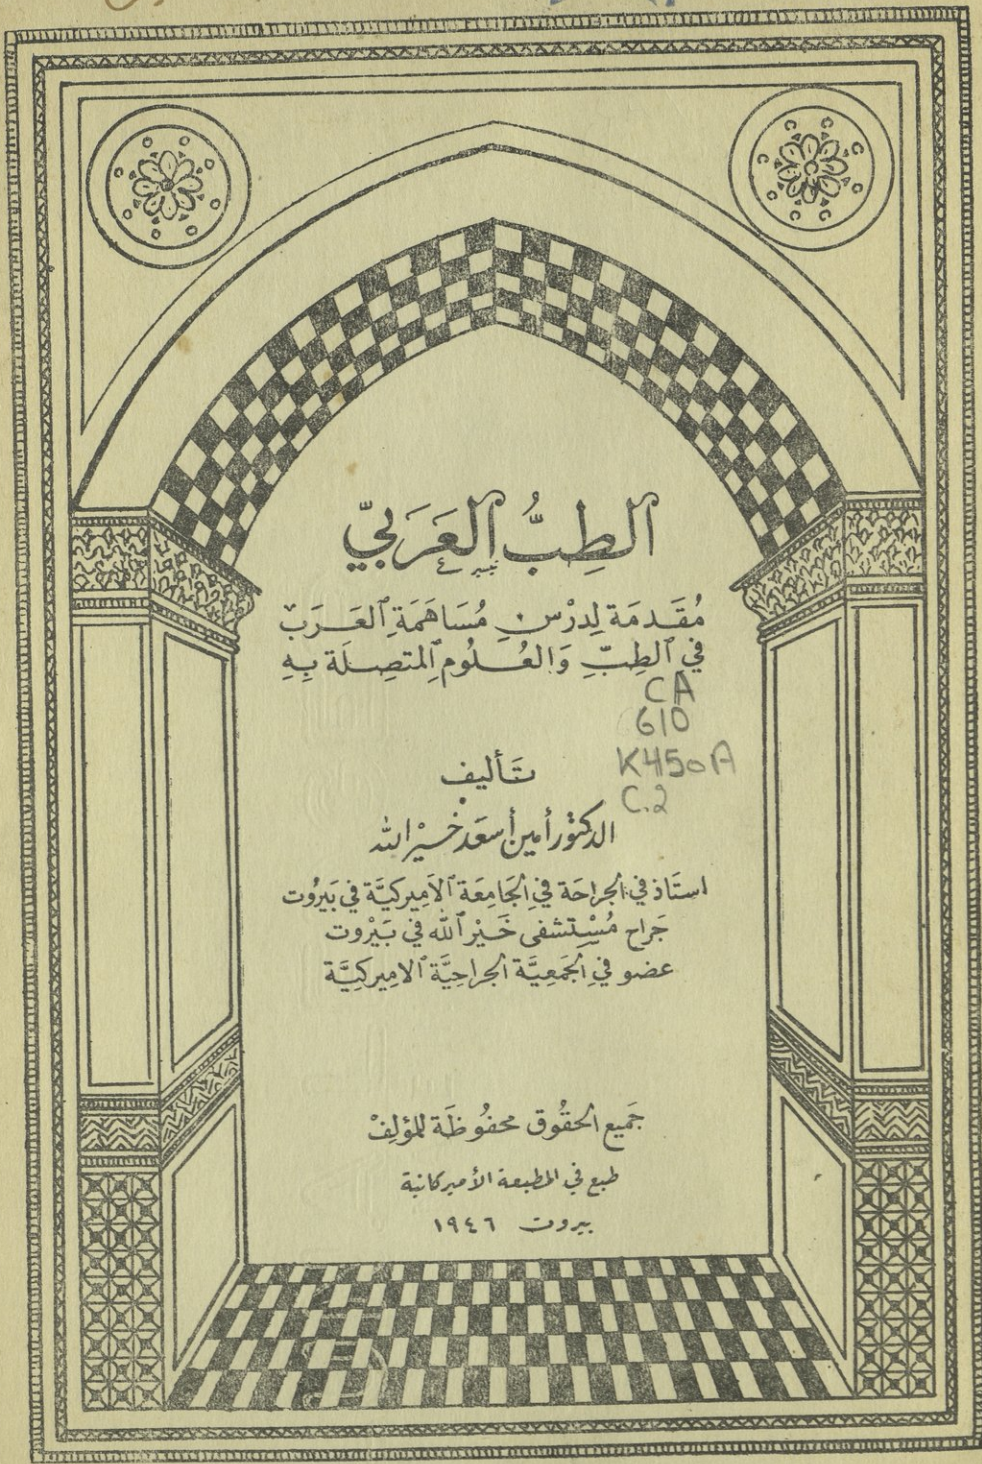 الطِبُّ العَرَبيّ
مُقَدمَة لِدرْس مُسَاهَمَةِ العَرَب
في الطِبّ وَالعُلُومِ المتصِلَة بِهِ
CA
610
K450A
C.2
تَأليف
الدكتور أمين أسعَد خَيْر الله
استَاذ في الجراحَة في الجَامِعَة الاَميركيَّة في بَيرُوت
جَراح مُسْتشفى خَيْر الله في بَيْروت
عضو في الجَمعِيَّة الجراحِيَّة الاميركِيَّة
جَميع الحقُوق محفُوظَة للمؤلِفْ
طبع في المطبعة الأميركانية
بيروت ١٩٤٦